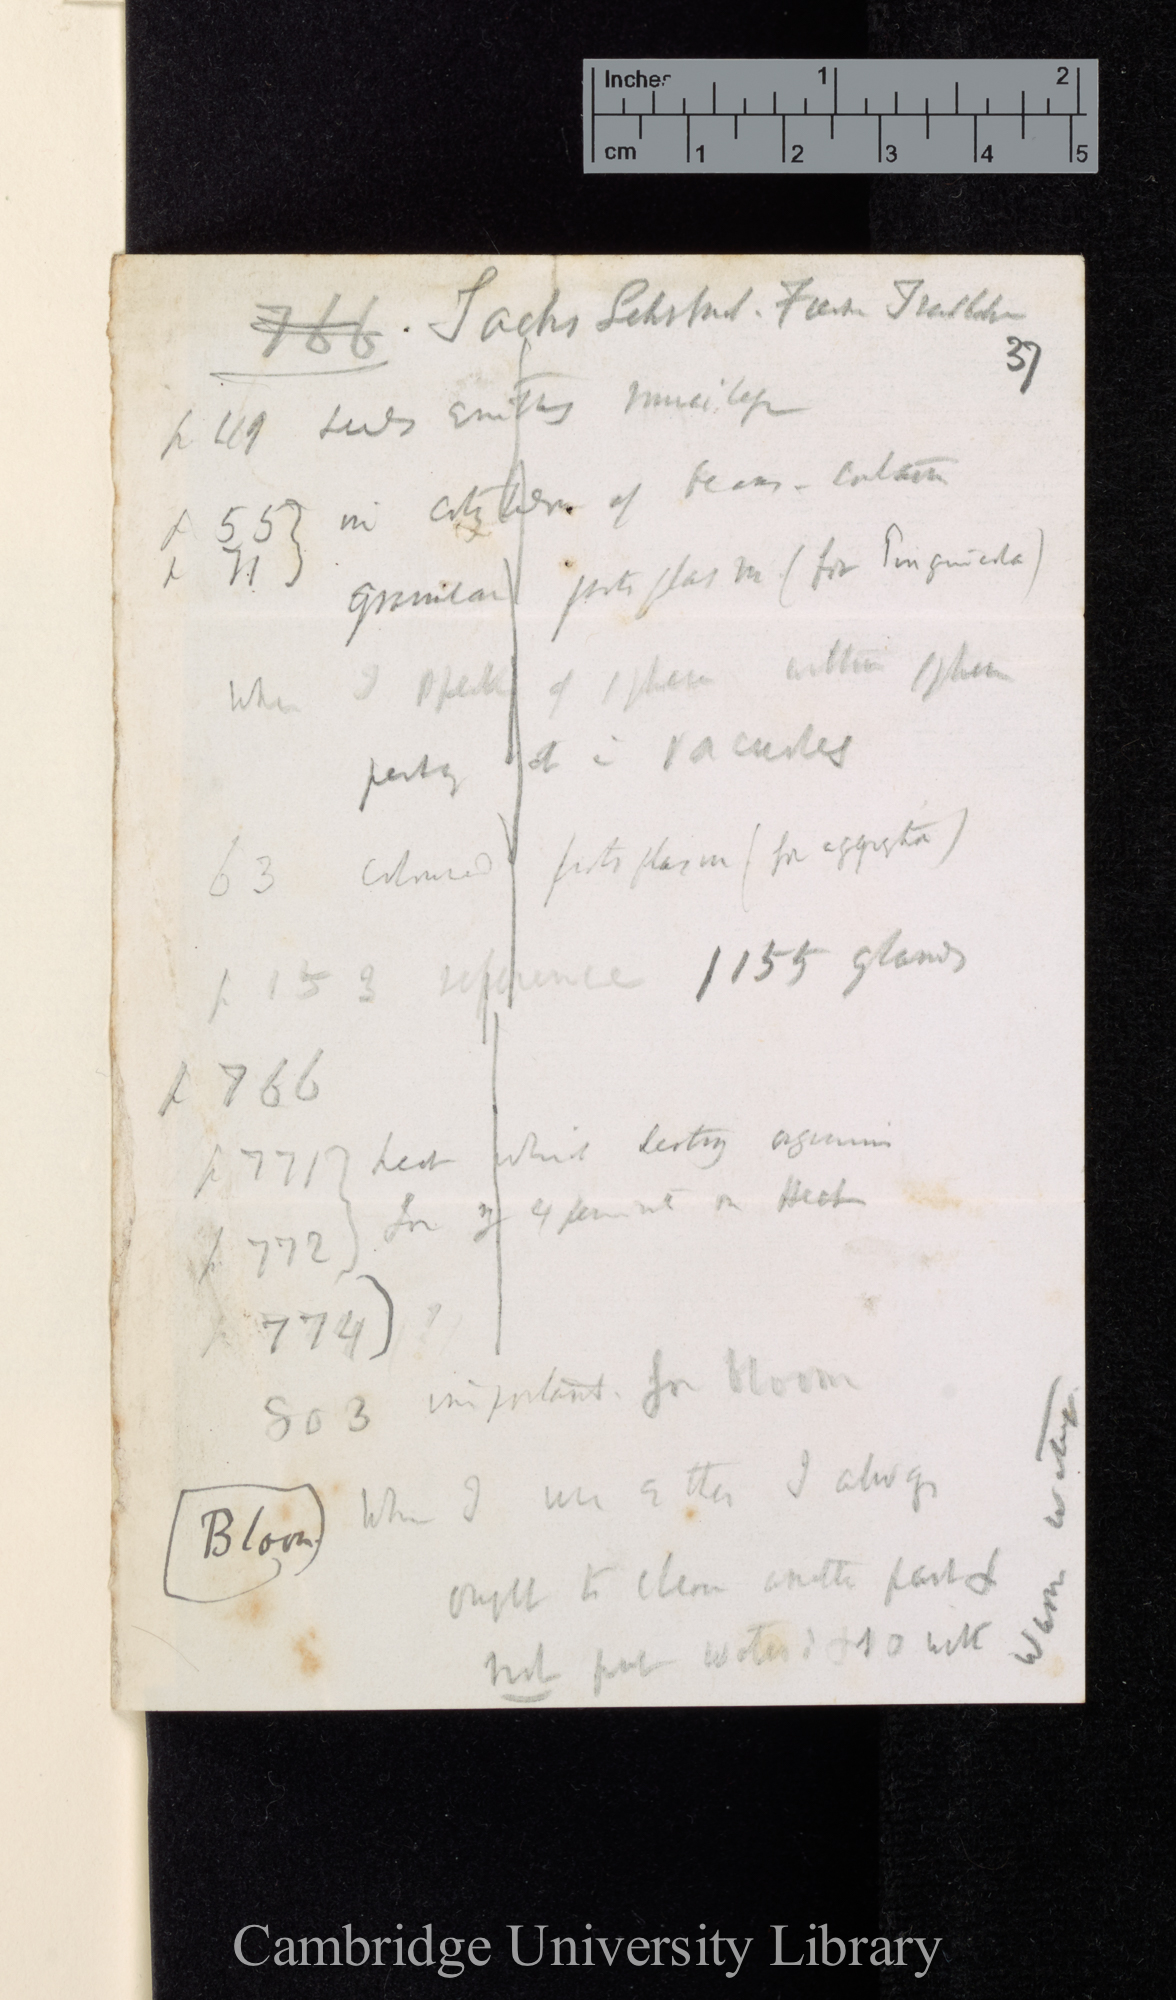 Inches 1 2
cm 1 2 3 4 5
766. Sachs Lehrbuch. French Translation
37
p 49 seeds emitting mucilage
p 55} in cotyledon of beans - contain
p 71} granular protoplasm (for Pinguicula)
When I speak of sphere within sphere
perhaps it is vacuoles
63 coloured protoplasm (for aggregation)
p 153 reference 1155 glands
p 766
p 771} heat which destroy organism
p 772} for my experiment on Heat
p 774) (?)
803 important for bloom
Bloom When I use ether I always
ought to clean another part &
not put water & so with
warm water
Cambridge University Library